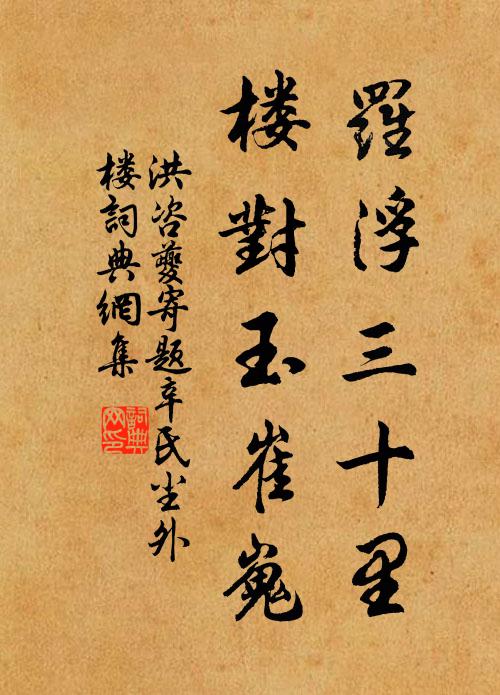 羅浮三十里
楼對玉崔嵬
洪咨夔寄题辛氏尘外
楼詞典網集
詞典
网印